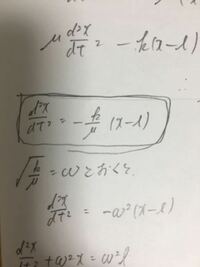 μ d²x/dt² = -k(x-l)
d²x/dt² = -k/μ (x-l)
√(k/μ) = ω とおくと、
d²x/dt² = -ω²(x-l)
d²x/dt² + ω²x = ω²l